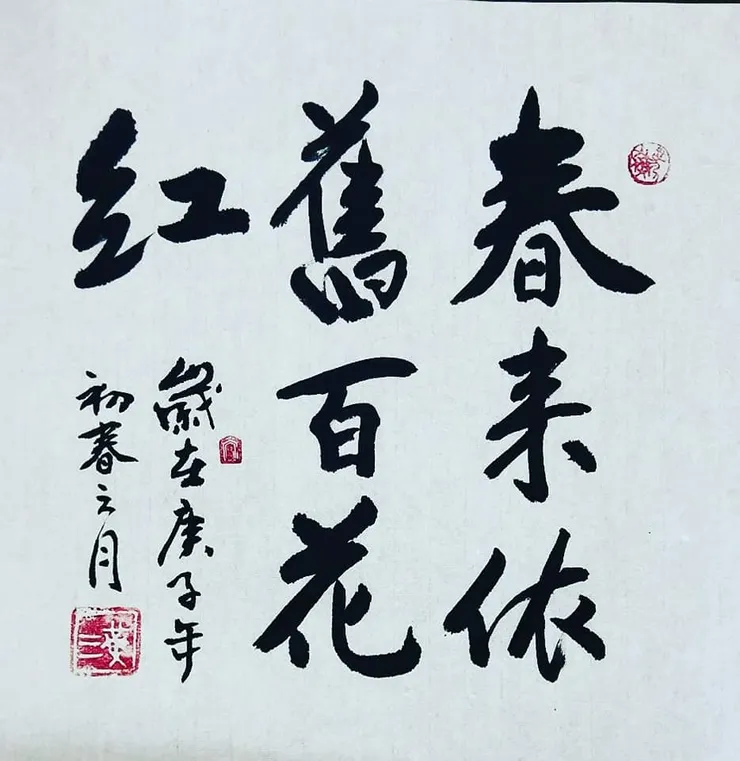 春来依
舊百花
红
歲在庚子年
初春之月